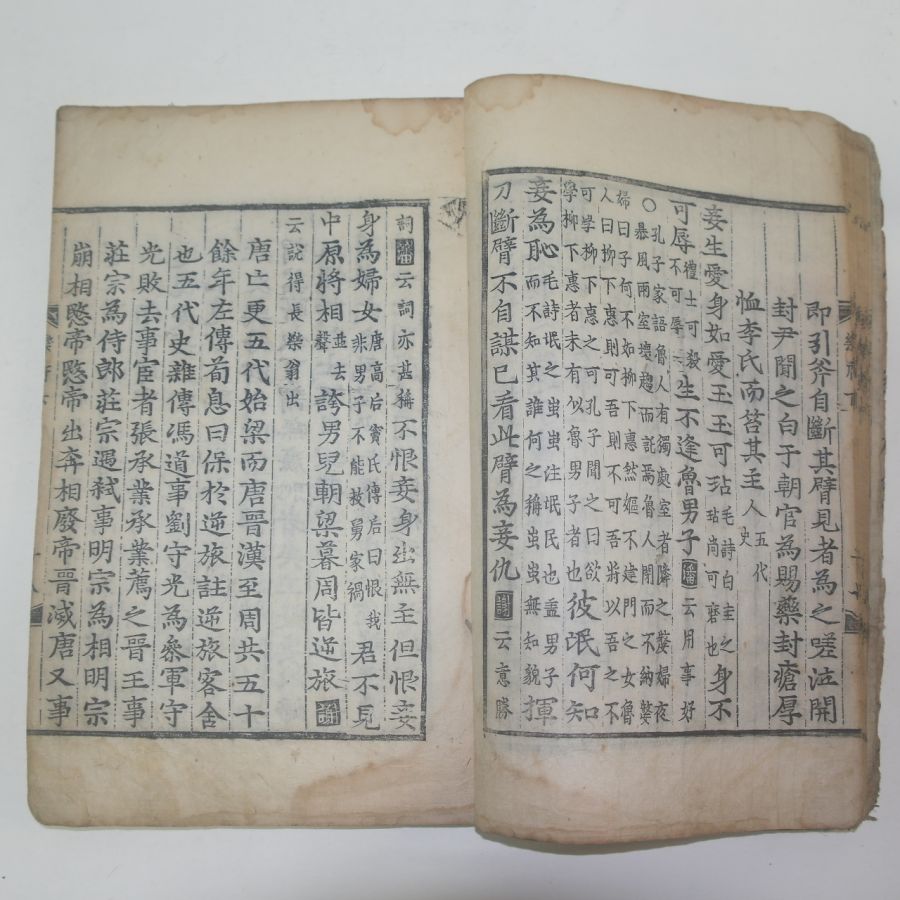 即引斧自斷其臂見者為之嗟泣開
封尹聞之白于朝官為賜藥封瘡厚
恤李氏而笞其主人五代史
妾生愛身如愛玉玉可玷毛詩白圭之玷尚可磨也身不
可辱禮士可殺不可辱生不逢魯男子潘云用事好
○孔子家語魯人有獨處室者隣之嫠婦夜
暴風雨室壞趨而託焉魯人閉而不納嫠
婦曰子何不如柳下惠然嫗不建門之女魯
人曰柳下惠則可吾則不可吾將以吾之不
可學柳下惠之可孔子聞之曰欲
學柳下惠者未有似魯男子者也彼氓何知
妾為恥毛詩氓之蚩蚩注氓民也盖男子而不知其誰何之稱蚩蚩無知貌揮
刀斷臂不自謀已看此臂為妾仇謝云意勝
詞潘云詞亦甚稱不恨妾身出無主但恨妾
身為婦女唐高后竇氏傳后曰恨我非男子不能救舅家禍君不見
中原將相並去聲誇男兒朝梁暮周皆逆旅謝
云說得長樂翁出
唐亡更五代始梁而唐晉漢至周共五十
餘年左傳荀息曰保於逆旅註逆旅客舍
也五代史雜傳馮道事劉守光為叅軍守
光敗去事宦者張承業承業薦之晉王事
莊宗為侍郎莊宗遇弑事明宗為相明宗
崩相愍帝愍帝出奔相廢帝晉滅唐又事